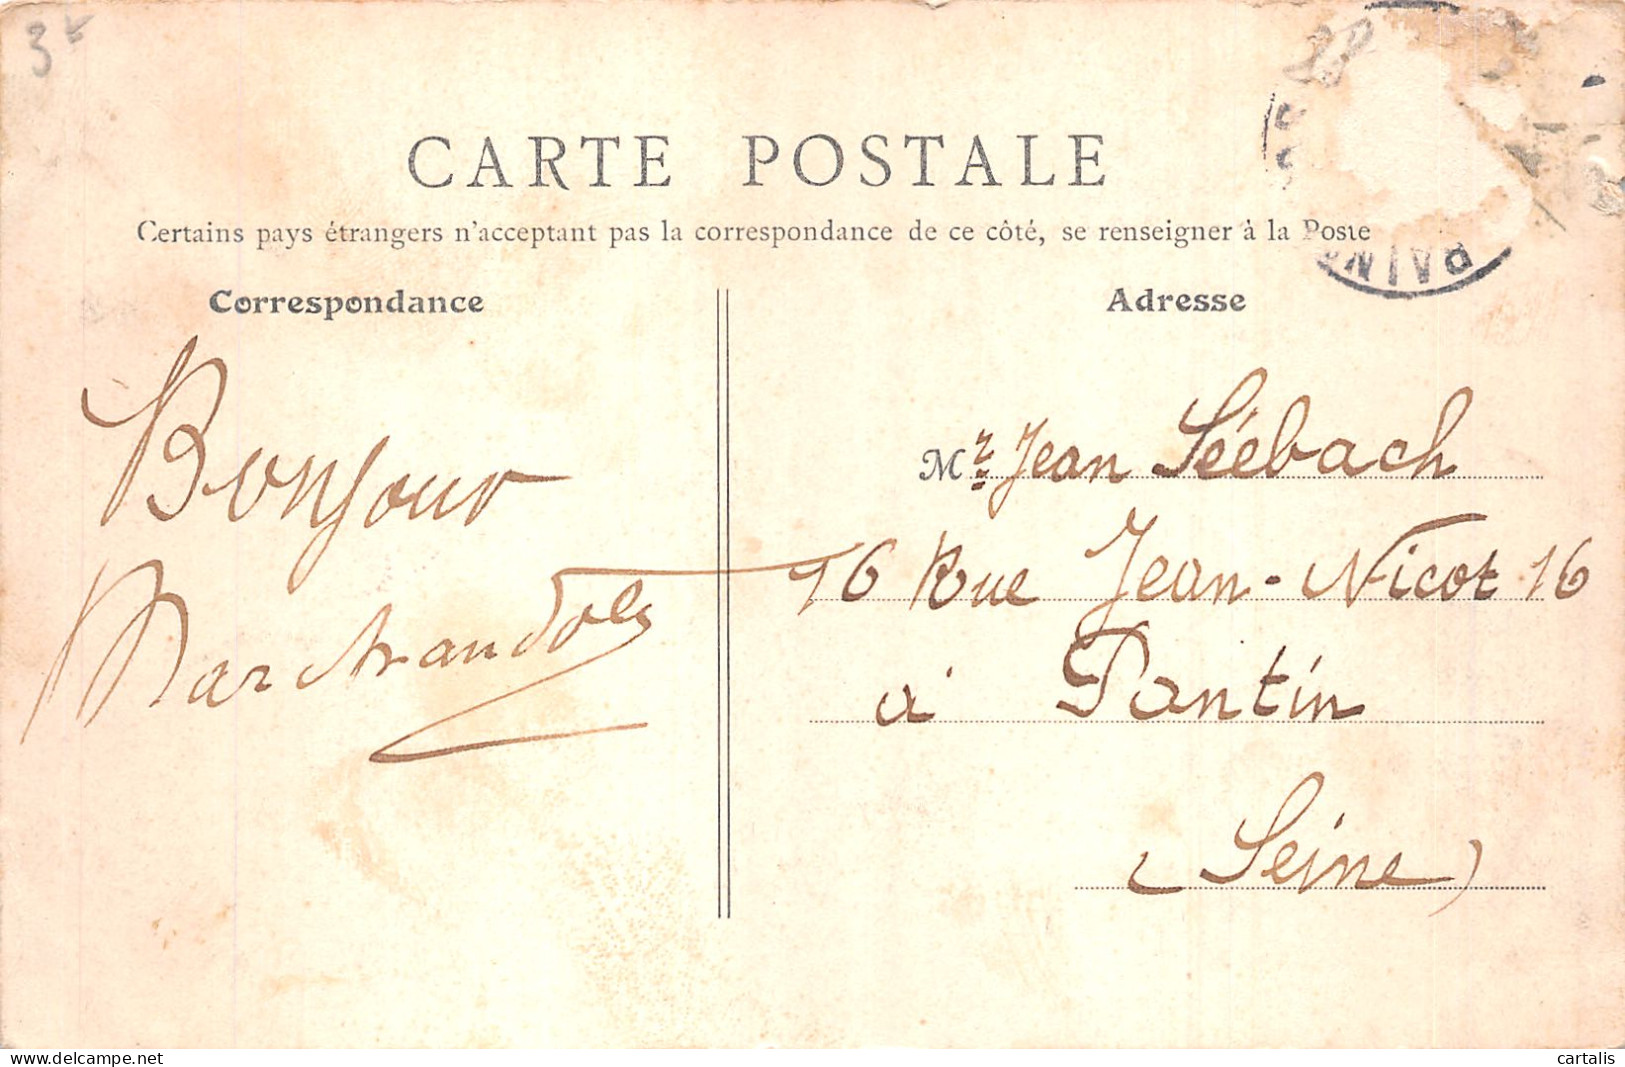 3
CARTE POSTALE
Certains pays étrangers n'acceptant pas la correspondance de ce côté, se renseigner à la Poste
Correspondance
Adresse
Bonjour
Mr Jean Séébach
16 Rue Jean-Nicot 16
à Pantin
(Seine)
delcampe.net
cartalis